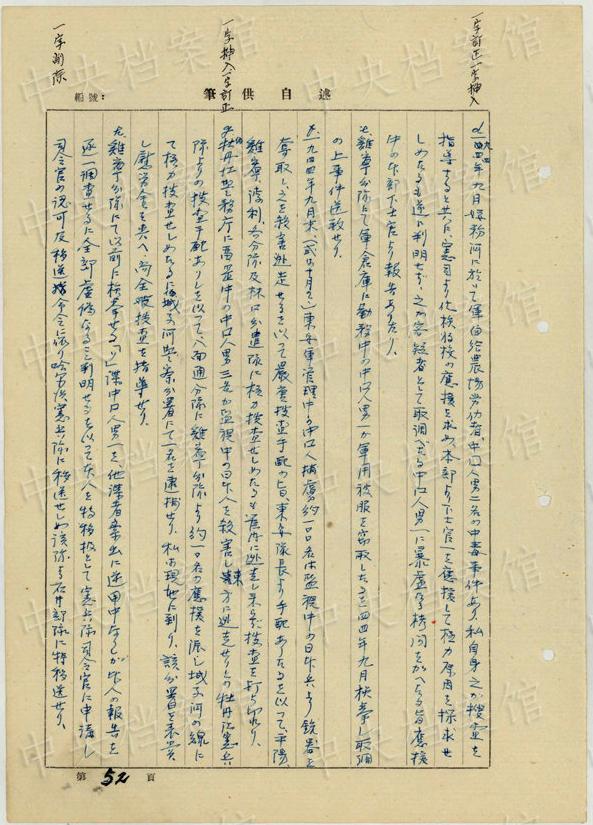 一字訂正一字挿入
一字挿入一字訂正
一字削除
筆供自述
編號:
一九四四年九月 河に於いて軍自給農場労働者、中国人男二名の中毒事件あり、私自身之が捜査を
指導すると共に、憲司より化検将校の應援を求め、本部より下士官一を應援して極力原因を探求せ
しめたるも遂に判明せず、之が容疑者として取調べたる中国人男一に暴虐なる拷問を加へたる旨應援
中の本部下士官より報告ありたり。
鷄寧分隊にて軍倉庫に勤務中の中国人男一が軍用被服を窃取したるを一九四四年九月検挙し取調
の上事件送致せり。
一九四四年九月末、(或は十月か)東安軍管理中の中国人捕虜約一〇名は監視中の日本兵より銃器を
奪取し、之を殺害逃走せるを以って厳重捜査手配の旨東安隊長より手配ありたるを以って、平陽
鷄寧、 各分隊及林口分遣隊に極力捜査せしめたるも 逃走し来らず、捜査を打切れり。
牡丹江 務庁に 置中の中国人男三名が監視中の日本人を殺害し東方に逃走せりとの牡丹江憲兵
隊よりの捜査手配ありしを以って八面通分隊に鷄寧分隊より約一〇名の應援を派し城子河の線に
て極力捜査せしめたるに城子河警察分署にて一名を逮捕せり。私は現地に到り、該分署を表賞
し慰労金を与へ、尚金 捜査を指導せり。
鷄寧分隊にて以前に検挙せる「ソ」諜中国人男一を、他諜者索出に逆用中なりしが本人の報告を
逐一調査せるに全部虚偽なること判明せるを以って本人を特移扱として憲兵隊司令官に申請し
司令官の認可及移送指令に依り哈尔浜憲兵隊に移送せしめ該隊より石井部隊に特移送せり。
第 52 頁
中央档案馆